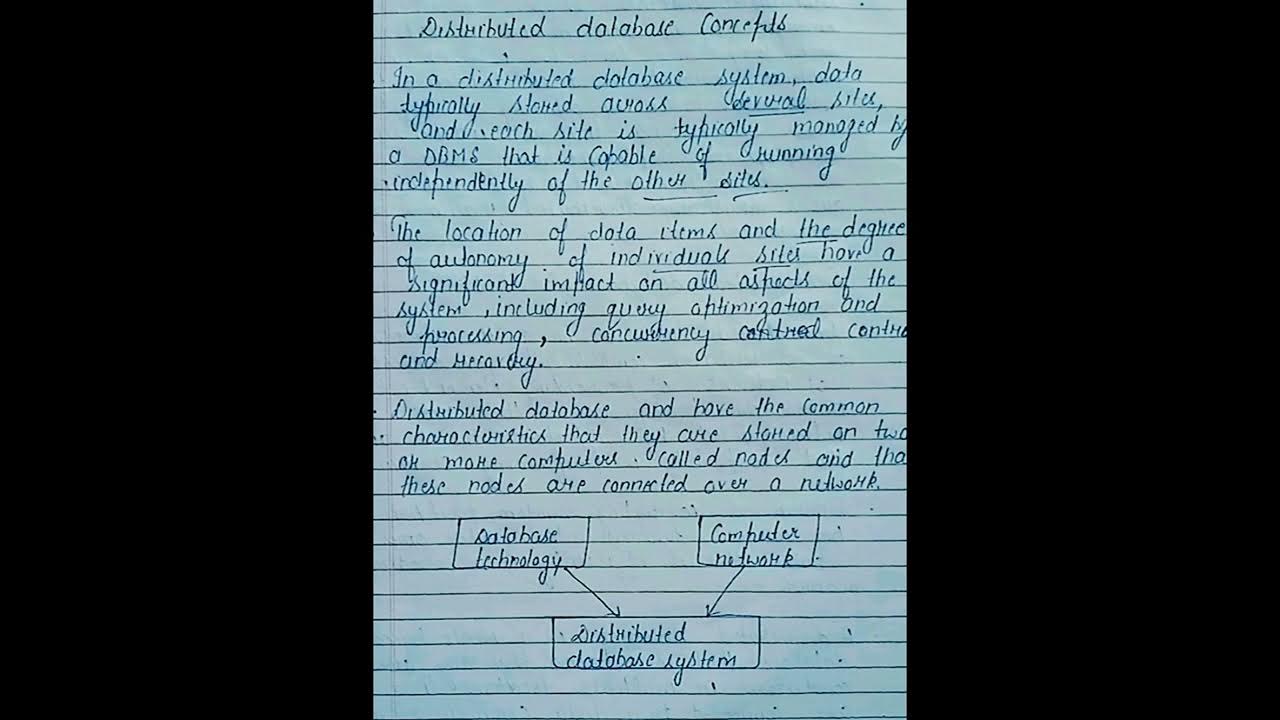 Distributed database Concepts
In a distributed database system, data
typically stored across several sites,
and each site is typically managed by
a DBMS that is capable of running
independently of the other sites.
The location of data items and the degree
of autonomy of individuals sites have a
significant impact on all aspects of the
system, including query optimization and
processing, concurrency control contro
and recovery.
Distributed database and have the common
characteristics that they are stored on two
or more computers. called nodes and tha
these nodes are connected over a network.
Database technology
Computer network
Distributed
database system